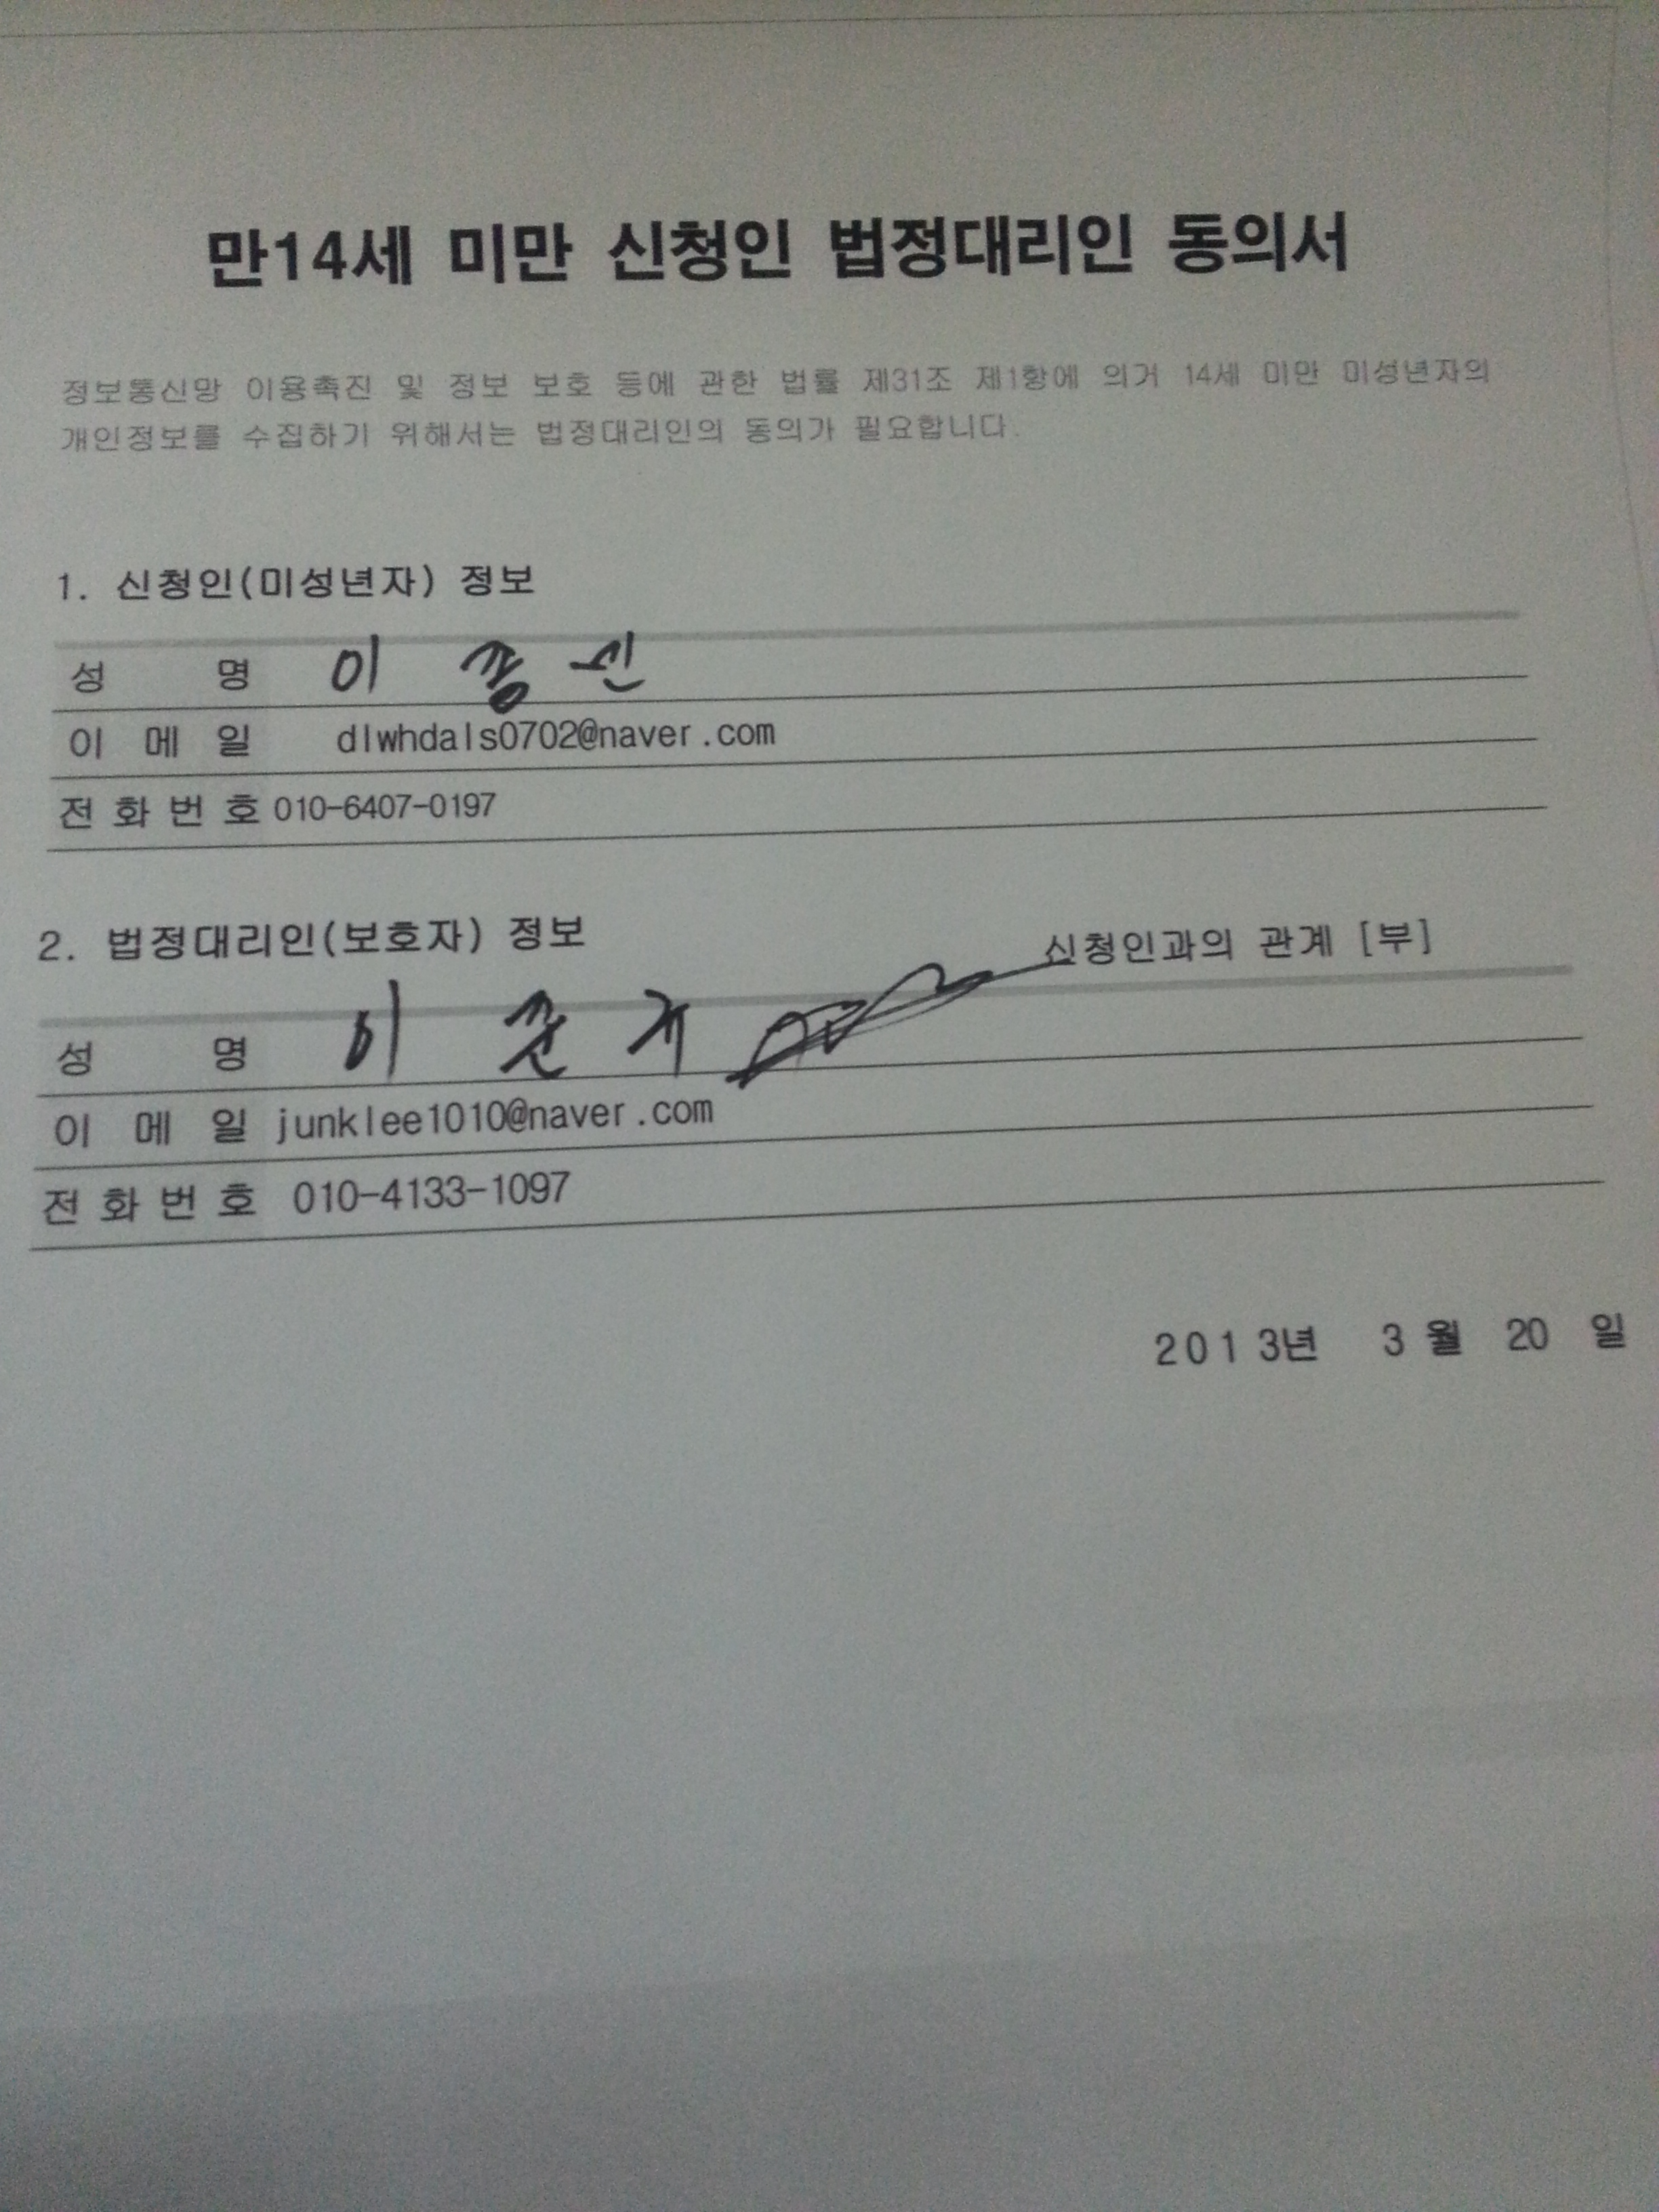 만14세 미만 신청인 법정대리인 동의서
정보통신망 이용촉진 및 정보 보호 등에 관한 법률 제31조 제1항에 의거 14세 미만 미성년자의
개인정보를 수집하기 위해서는 법정대리인의 동의가 필요합니다.
1. 신청인(미성년자) 정보
성 명 이 종
이 메 일 dlwhdals0702@naver.com
전 화 번 호 010-6407-0197
2. 법정대리인(보호자) 정보 신청인과의 관계 [부]
성 명 이 준
이 메 일 junklee1010@naver.com
전 화 번 호 010-4133-1097
2013년 3 월 20 일